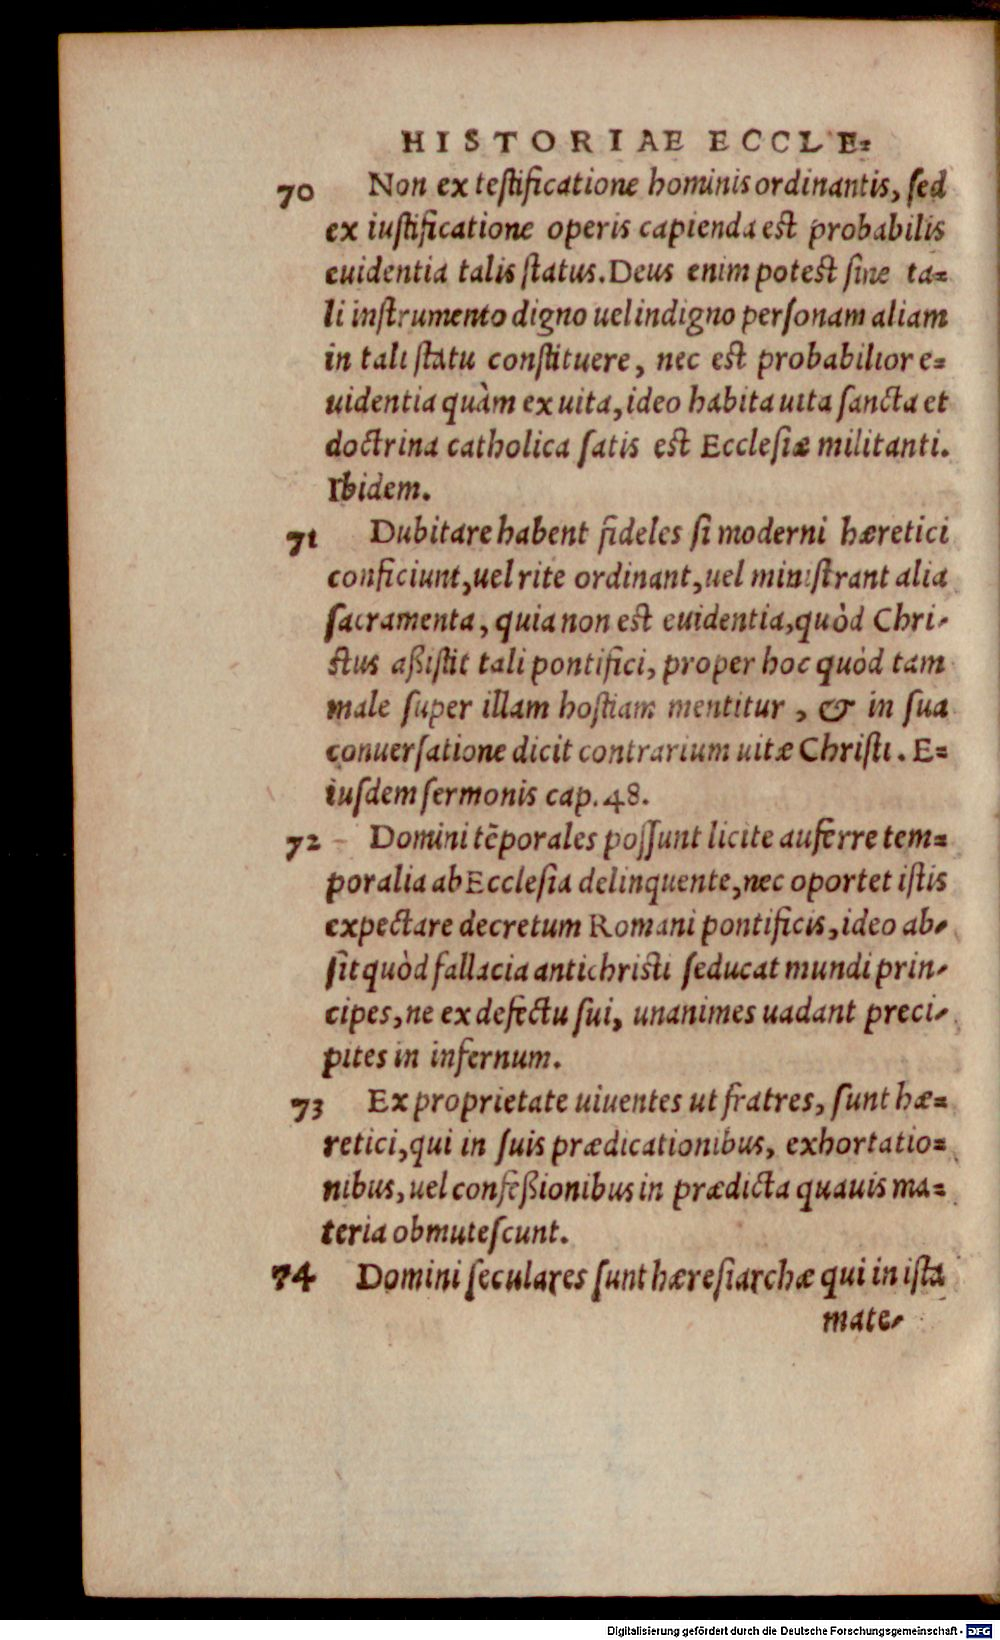 HISTORIAE ECCLE=
70 Non ex testificatione hominis ordinantis, sed
ex iustificatione operis capienda est probabilis
euidentia talis status. Deus enim potest sine ta=
li instrumento digno uel indigno personam aliam
in tali statu constituere, nec est probabilior e=
uidentia quàm ex uita, ideo habita uita sancta et
doctrina catholica satis est Ecclesiæ militanti.
Ibidem.
71 Dubitare habent fideles si moderni hæretici
conficiunt, uel rite ordinant, uel ministrant alia
sacramenta, quia non est euidentia, quòd Chri-
stus aßistit tali pontifici, proper hoc quòd tam
male super illam hostiam mentitur, & in sua
conuersatione dicit contrarium uitæ Christi. E=
iusdem sermonis cap. 48.
72 Domini tẽporales possunt licite auferre tem=
poralia ab Ecclesia delinquente, nec oportet istis
expectare decretum Romani pontificis, ideo ab-
sit quòd fallacia antichristi seducat mundi prin-
cipes, ne ex defectu sui, unanimes uadant preci-
pites in infernum.
73 Ex proprietate uiuentes ut fratres, sunt hæ=
retici, qui in suis prædicationibus, exhortatio=
nibus, uel confeßionibus in prædicta quauis ma=
teria obmutescunt.
74 Domini seculares sunt hæresiarchæ qui in ista
mate-
Digitalisierung gefördert durch die Deutsche Forschungsgemeinschaft - DFG